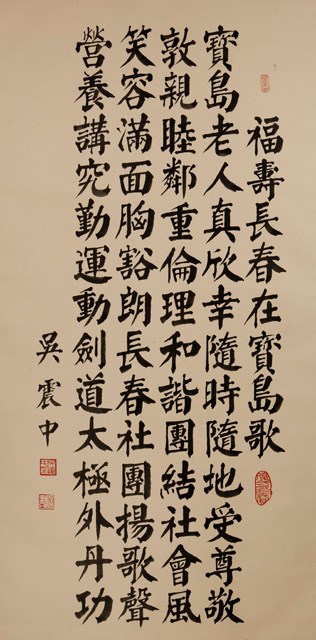 福壽長春在寶島歌
寶島老人真欣幸隨時隨地受尊敬
敦親睦鄰重倫理和諧團結社會風
笑容滿面胸豁朗長春社團揚歌聲
營養講究勤運動劍道太極外丹功
吳震中